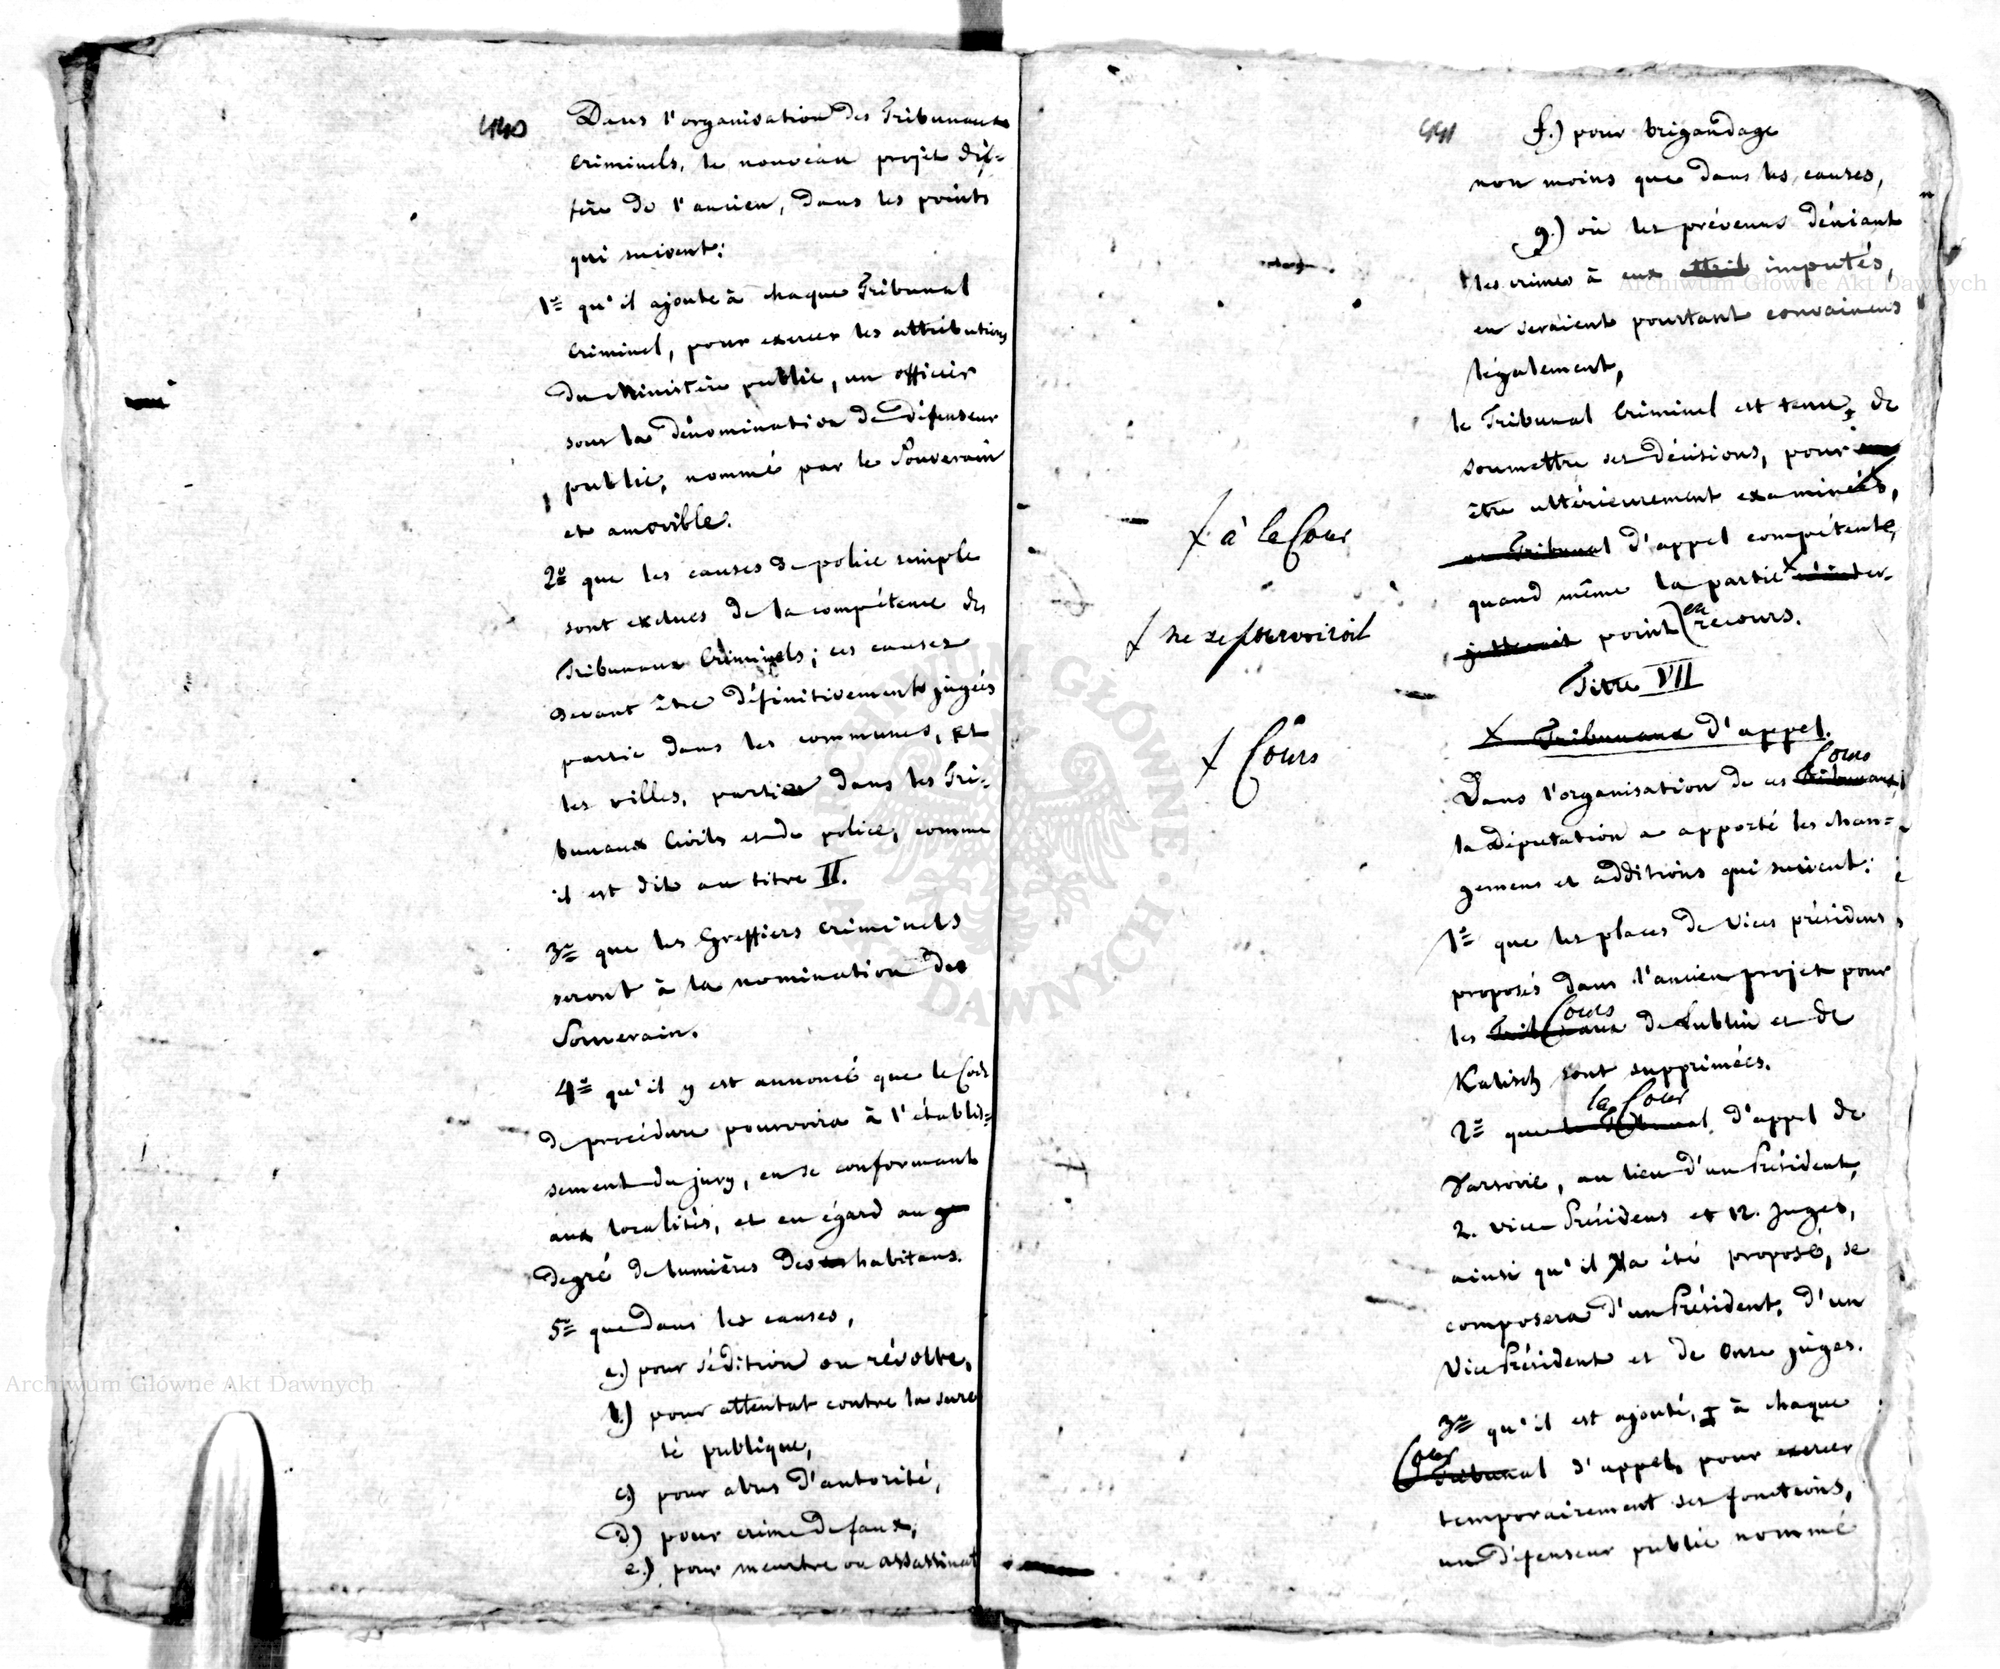 440
Dans l'organisation des Tribunaux
Criminels, le nouveau projet dif=
fère de l'ancien, dans les points
qui suivent:
1º qu'il ajoute à chaque Tribunal
Criminel, pour exercer les attributions
du Ministère public, un officier
sous la dénomination de défenseur
public, nommé par le Souverain
et amovible.
2º que les causes de police simple
sont exclues de la compétence des
Tribunaux Criminels; ces causes
devant être définitivement jugées
partie dans les communes, et
les villes, partie dans les Tri=
bunaux Civils et de police, comme
il est dit au titre II.
3º que les Greffiers criminels
seront à la nomination des
Souverain.
4º qu'il y est annoncé que le Code
de procédure pourvoira à l'établis=
sement du jury, en se conformant
aux localités, et eu égard au
degré de lumières des habitans.
5º que dans les causes,
a.) pour sédition ou révolte,
b.) pour attentat contre la sure
té publique,
c.) pour abus d'autorité,
d.) pour crime de faux,
e.) pour meurtre ou assassinat
441
f.) pour brigandage
non moins que dans les causes,
g.) où les prévenus déniant
les crimes à eux attrib imputés,
en seraient pourtant convaincus
légalement,
le Tribunal Criminel est tenu, de
soumettre ses décisions, pour
être ultérieurement examinées,
+ à la Cour
au Tribunal d'appel compétente,
quand même la partie + n'inter-
+ ne se pourvoiroit
jetterait point en recours.
Titre VII
+ Tribunaux d'appel.
+ Cours
Cours
Dans l'organisation de ces Tribunaux,
la députation a apporté les chan=
gemens et additions qui suivent:
1º que les places de Vices présidens,
proposés dans l'ancien projet pour
Cours
les Tribunaux de Lublin et de
Kalisch sont supprimées.
la Cour
2º que le Tribunal d'appel de
Varsovie, au lieu d'un Président,
2. vice Présidens et 12. Juges,
ainsi qu'il a été proposé, se
composera d'un Président, d'un
Vice Président et de Onze juges.
3º qu'il est ajouté, à chaque
Cour
Tribunal d'appel, pour exercer
temporairement ses fonctions,
un défenseur public nommé
Archiwum Główne Akt Dawnych
Archiwum Główne Akt Dawnych
ARCHIWUM GŁÓWNE AKT DAWNYCH